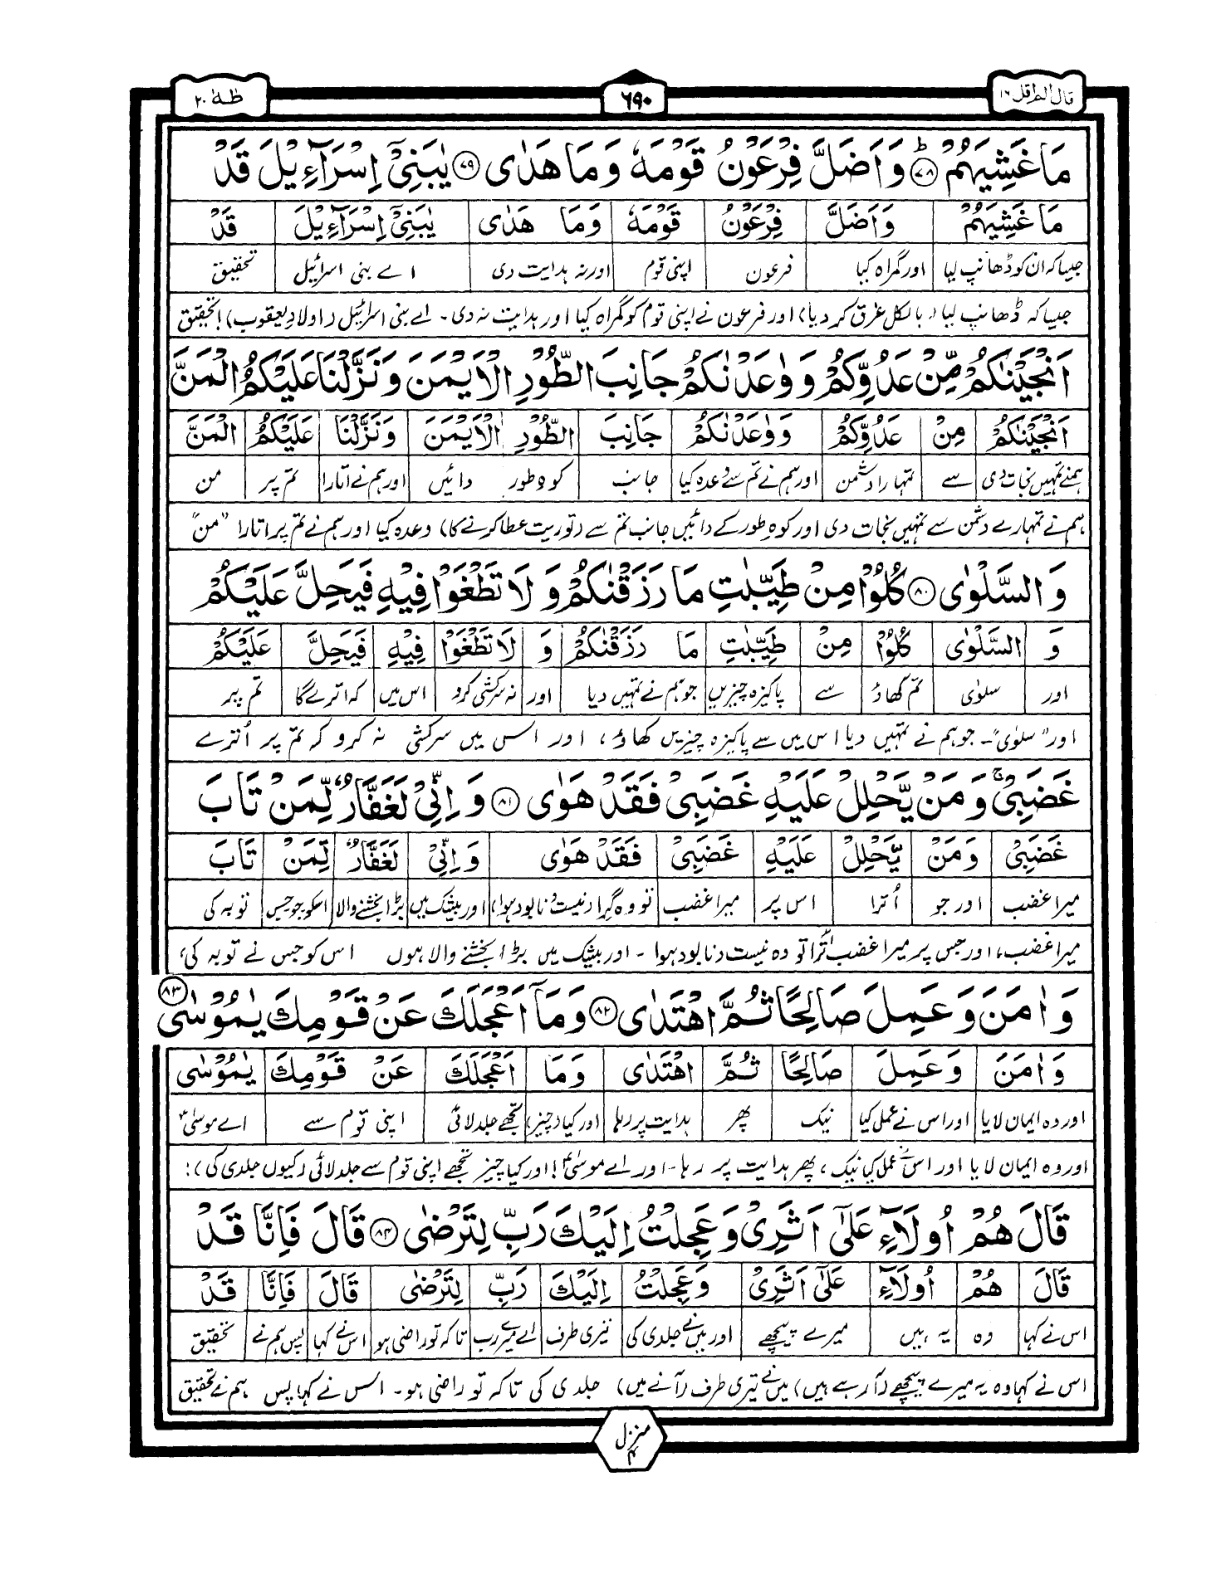 قال الم اقل ۱۶
۶۹۰
طٰهٰ ۲۰
مَا غَشِیَهُمْ ﴿۷۸﴾ؕ وَ اَضَلَّ فِرْعَوْنُ قَوْمَهٗ وَ مَا هَدٰی ﴿۷۹﴾ یٰبَنِیْۤ اِسْرَآءِیْلَ قَدْ
مَا غَشِیَهُمْ وَ اَضَلَّ فِرْعَوْنُ قَوْمَهٗ وَمَا هَدٰی یٰبَنِیْۤ اِسْرَآءِیْلَ قَدْ
جیسا کہ ان کو ڈھانپ لیا اور گمراہ کیا فرعون اپنی قوم اور نہ ہدایت دی اے بنی اسرائیل تحقیق
جیسا کہ ڈھانپ لیا (بالکل غرق کر دیا) اور فرعون نے اپنی قوم کو گمراہ کیا اور ہدایت نہ دی۔ اے بنی اسرائیل (اولادِ یعقوب)! تحقیق
اَنْجَیْنٰكُمْ مِّنْ عَدُوِّكُمْ وَ وٰعَدْنٰكُمْ جَانِبَ الطُّوْرِ الْاَیْمَنَ وَ نَزَّلْنَا عَلَیْكُمُ الْمَنَّ
اَنْجَیْنٰكُمْ مِنْ عَدُوِّكُمْ وَ وٰعَدْنٰكُمْ جَانِبَ الطُّوْرِ الْاَیْمَنَ وَ نَزَّلْنَا عَلَیْكُمُ الْمَنَّ
ہمنے تمہیں نجات دی سے تمہارا دشمن اور ہم نے تم سے وعدہ کیا جانب کوہ طور دائیں اور ہم نے اتارا تم پر من
ہم نے تمہارے دشمن سے تمہیں نجات دی اور کوہِ طور کے دائیں جانب تم سے (توریت عطا کرنے کا) وعدہ کیا اور ہم نے تم پر اتارا "من"
وَ السَّلْوٰی ﴿۸۰﴾ كُلُوْا مِنْ طَیِّبٰتِ مَا رَزَقْنٰكُمْ وَ لَا تَطْغَوْا فِیْهِ فَیَحِلَّ عَلَیْكُمْ
وَ السَّلْوٰی كُلُوْا مِنْ طَیِّبٰتِ مَا رَزَقْنٰكُمْ وَ لَا تَطْغَوْا فِیْهِ فَیَحِلَّ عَلَیْكُمْ
اور سلوٰی تم کھاؤ سے پاکیزہ چیزیں جو ہم نے تمہیں دیا اور نہ سرکشی کرو اس میں کہ اترے گا تم پر
اور "سلوٰی"۔ جو ہم نے تمہیں دیا اس میں سے پاکیزہ چیزیں کھاؤ، اور اس میں سرکشی نہ کرو کہ تم پر اُترے
غَضَبِیْ ۚ وَ مَنْ یَّحْلِلْ عَلَیْهِ غَضَبِیْ فَقَدْ هَوٰی ﴿۸۱﴾ وَ اِنِّیْ لَغَفَّارٌ لِّمَنْ تَابَ
غَضَبِیْ وَ مَنْ یَّحْلِلْ عَلَیْهِ غَضَبِیْ فَقَدْ هَوٰی وَ اِنِّیْ لَغَفَّارٌ لِّمَنْ تَابَ
میرا غضب اور جو اُترا اس پر میرا غضب تو وہ گرا (نیست و نابود ہوا) اور بیشک میں بڑا بخشنے والا اسکو جو جس توبہ کی
میرا غضب، اور جس پر میرا غضب اُترا تو وہ نیست و نابود ہوا۔ اور بیشک میں بڑا بخشنے والا ہوں اس کو جس نے توبہ کی،
وَ اٰمَنَ وَ عَمِلَ صَالِحًا ثُمَّ اهْتَدٰی ﴿۸۲﴾ وَ مَاۤ اَعْجَلَكَ عَنْ قَوْمِكَ یٰمُوْسٰی ﴿۸۳﴾
وَ اٰمَنَ وَ عَمِلَ صَالِحًا ثُمَّ اهْتَدٰی وَمَا اَعْجَلَكَ عَنْ قَوْمِكَ یٰمُوْسٰی
اور وہ ایمان لایا اور اس نے عمل کیا نیک پھر ہدایت پر رہا اور کیا (چیز) تجھے جلد لائی اپنی قوم سے اے موسیٰؑ
اور وہ ایمان لایا اور اس نے عمل کیا نیک، پھر ہدایت پر رہا۔ اور اے موسیٰؑ! اور کیا چیز تجھے اپنی قوم سے جلد لائی (کیوں جلدی کی)؛
قَالَ هُمْ اُولَآءِ عَلٰۤی اَثَرِیْ وَ عَجِلْتُ اِلَیْكَ رَبِّ لِتَرْضٰی ﴿۸۴﴾ قَالَ فَاِنَّا قَدْ
قَالَ هُمْ اُولَآءِ عَلٰۤی اَثَرِیْ وَ عَجِلْتُ اِلَیْكَ رَبِّ لِتَرْضٰی قَالَ فَاِنَّا قَدْ
اس نے کہا وہ یہ ہیں میرے پیچھے اور میں نے جلدی کی تیری طرف اے میرے رب تاکہ تو راضی ہو اس نے کہا پس ہم نے تحقیق
اس نے کہا وہ یہ میرے پیچھے (آ رہے ہیں) میں نے تیری طرف (آنے میں) جلدی کی تاکہ تو راضی ہو۔ اس نے کہا پس ہم نے تحقیق
منزل ۴